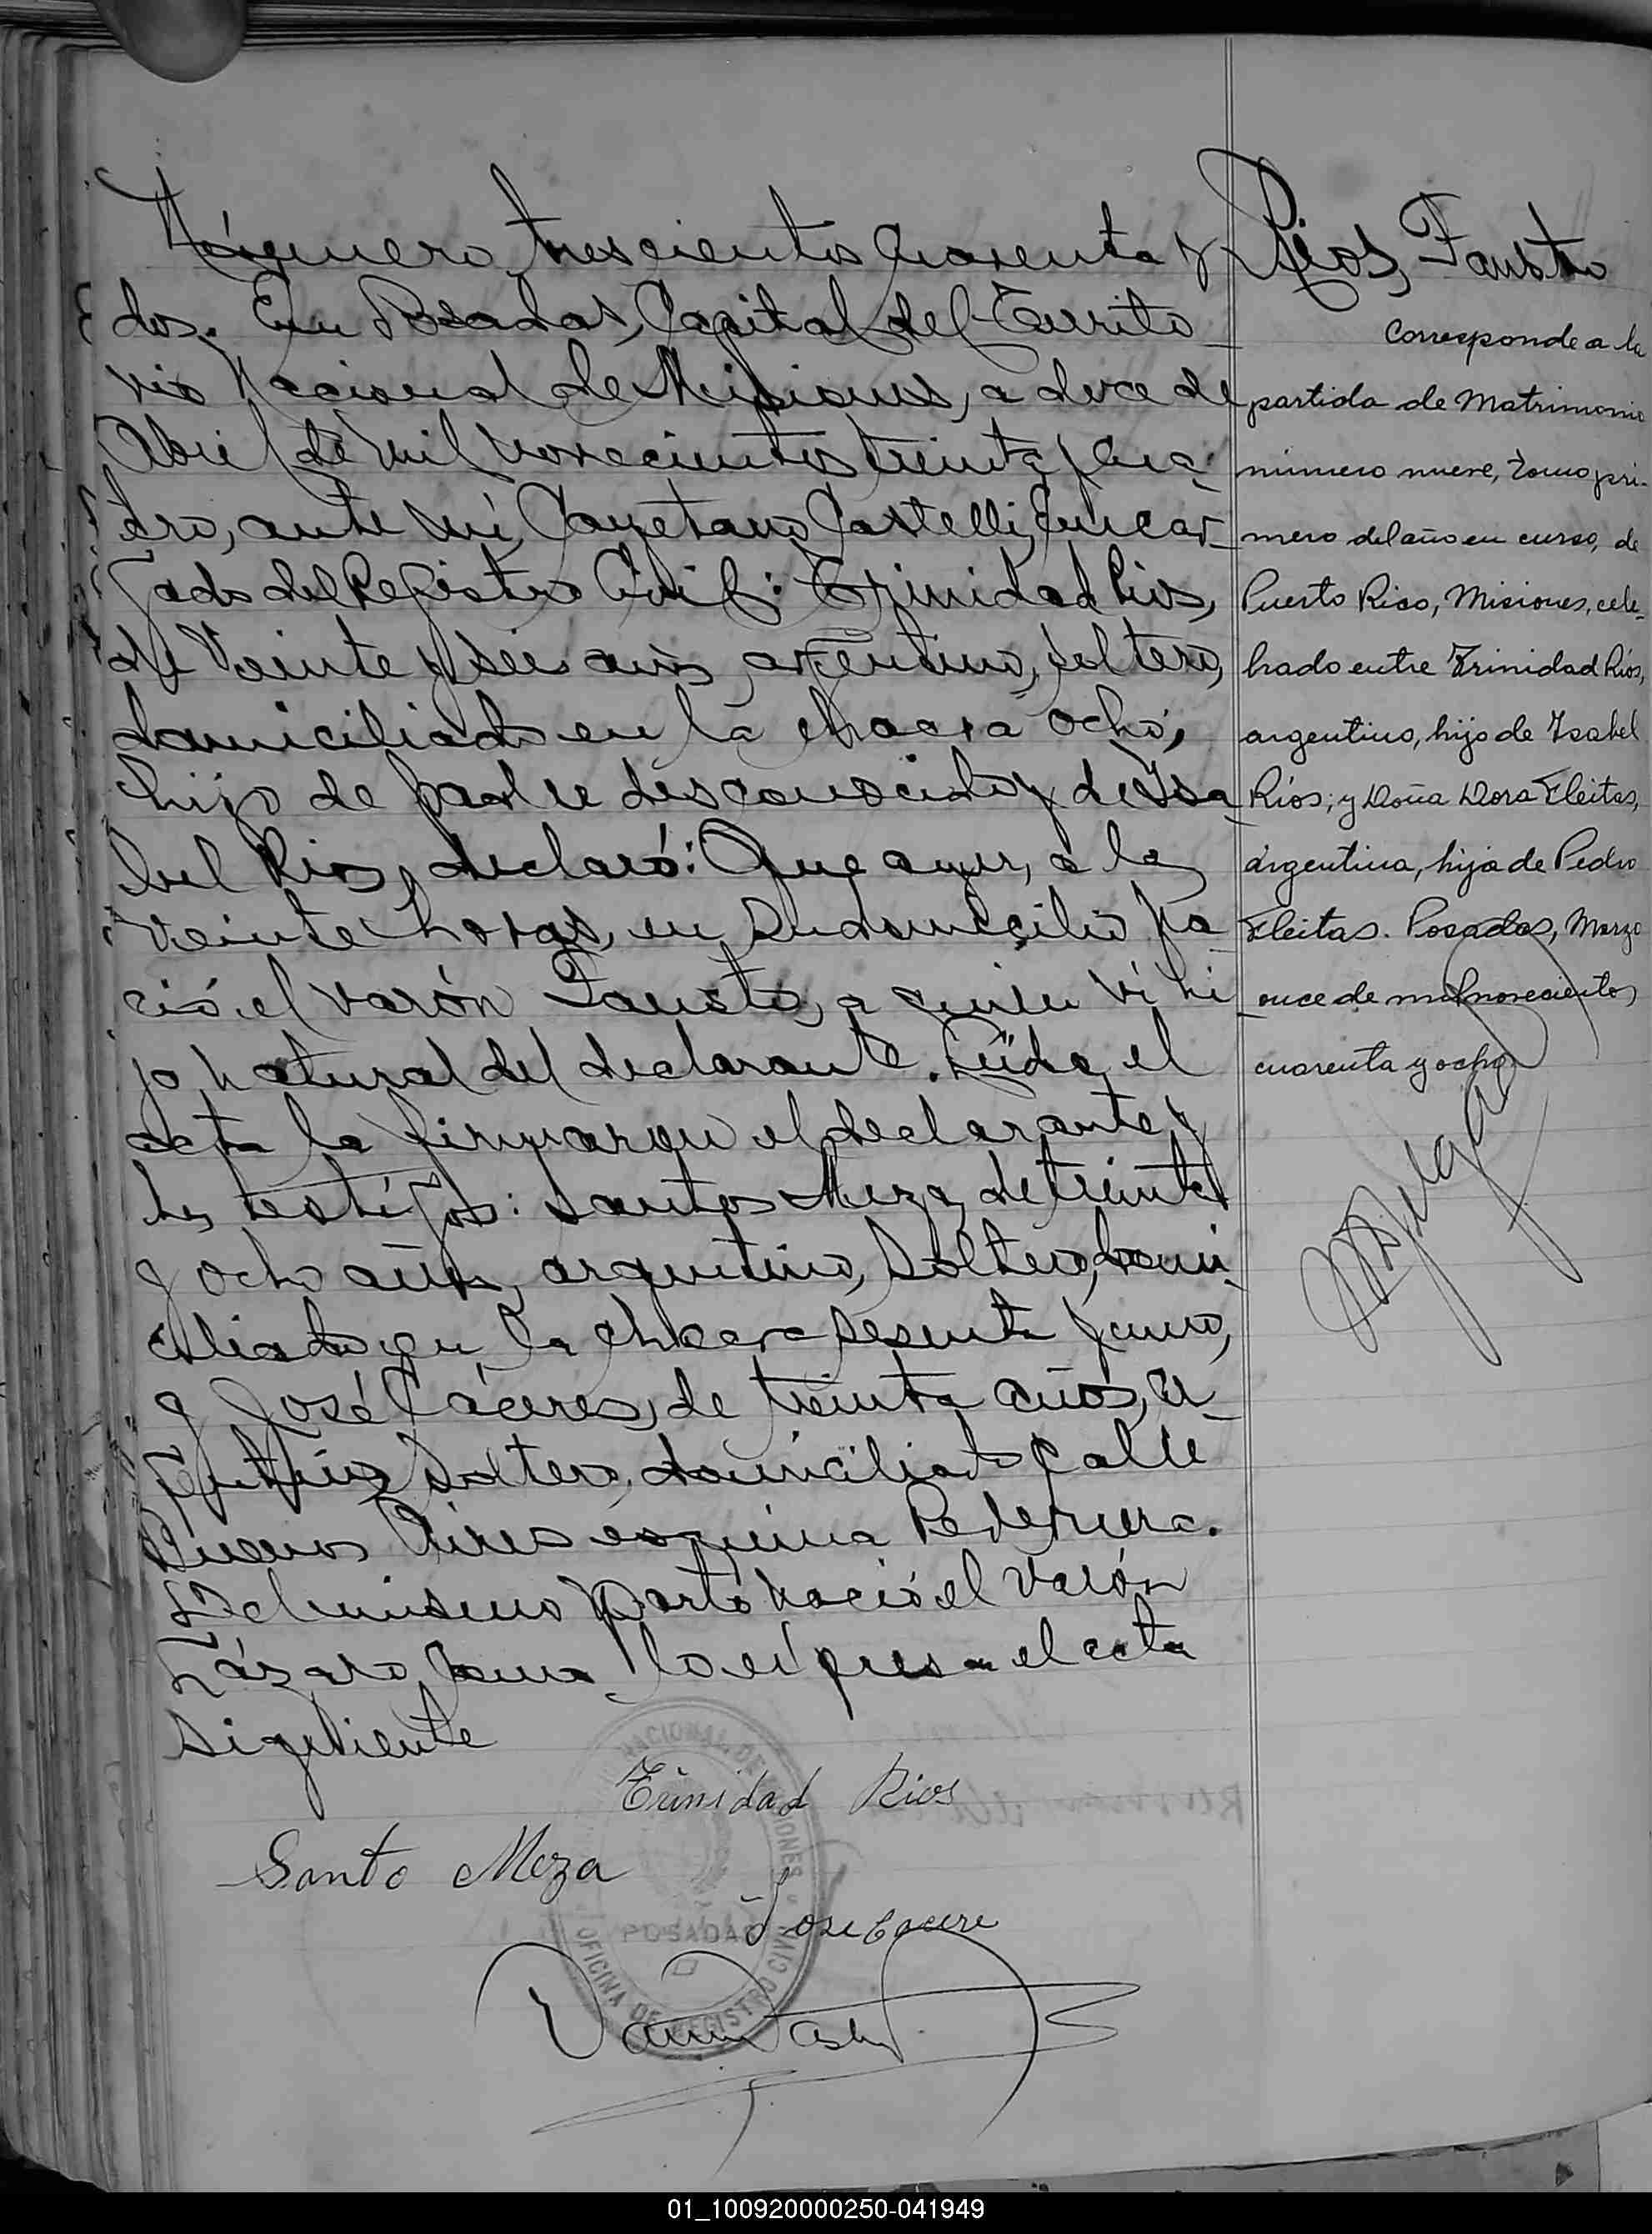 Número trescientos cuarenta y
dos. En Posadas, Capital del Territo
rio Nacional de Misiones, a doce de
Abril de mil novecientos treinta y cua
tro, ante mí, Cayetano Castelli, Encar_
gado del Registro Civil: Trinidad Rios,
de veinte y seis años, argentino, soltero,
domiciliado en la chacra ocho,
hijo de padre desconocido y de Isa_
bel Rios, declaró: Que ayer, a las
veinte horas, en su domicilio na
ció el varón Fausto, a quien ví hi_
jo natural del declarante. Leída el
acta la firmaron el declarante y
los testigos: Santos Meza, de treinta
y ocho años, argentino, soltero, domi_
ciliado en la chacra sesenta y uno,
y José Cáceres, de treinta años, ar_
gentino, soltero, domiciliado calle
Buenos Aires esquina Pedernera.
Del mismo parto nació el varón
Lázaro como lo expresa el acta
siguiente
Trinidad Rios
Santo Meza
Jose Cacere
NACIONAL DE MISIONES
POSADAS
OFICINA DE REGISTRO CIVIL
Rios, Fausto
Corresponde a la
partida de Matrimonio
número nueve, tomo pri_
mero del año en curso, de
Puerto Rico, Misiones, cele_
brado entre Trinidad Rios,
argentino, hijo de Isabel
Rios; y Doña Dora Fleitas,
argentina, hija de Pedro
Fleitas. Posadas, Marzo
once de mil novecientos
cuarenta y ocho
01_100920000250-041949